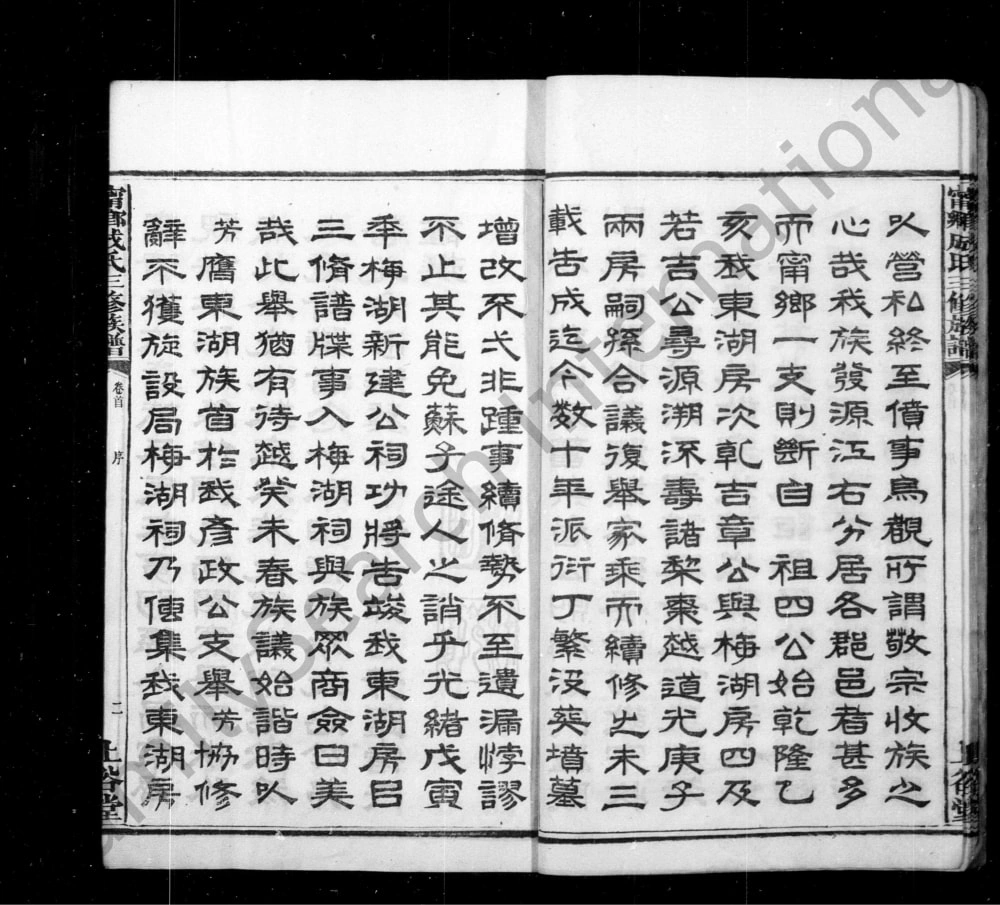 以營私終至僨事烏觀所謂敬宗收族之
心哉我族發源江右分居各郡邑者甚多
而甯鄉一支則斷自 祖四公始乾隆乙
亥我東湖房次乾吉章公與梅湖房四及
若吉公尋源溯流壽諸梨棗越道光庚子
兩房嗣孫合議復舉家乘而續修之未三
載告成迄今数十年派衍丁繁没葬墳墓
增改不弌非踵事續脩勢不至遺漏悖謬
不止其能免蘇子途人之誚乎光緒戊寅
季梅湖新建公祠功將告竣我東湖房㠯
三脩譜牒事入梅湖祠與族眾商僉曰美
哉此舉猶有待越癸未春族議始諧時以
芳膺東湖族首於我彥政公支舉 芳協修
辭不獲旋設局梅湖祠乃傳集我東湖房
甯鄉成氏三修族譜
卷首
序
二
上谷堂
FamilySearch International